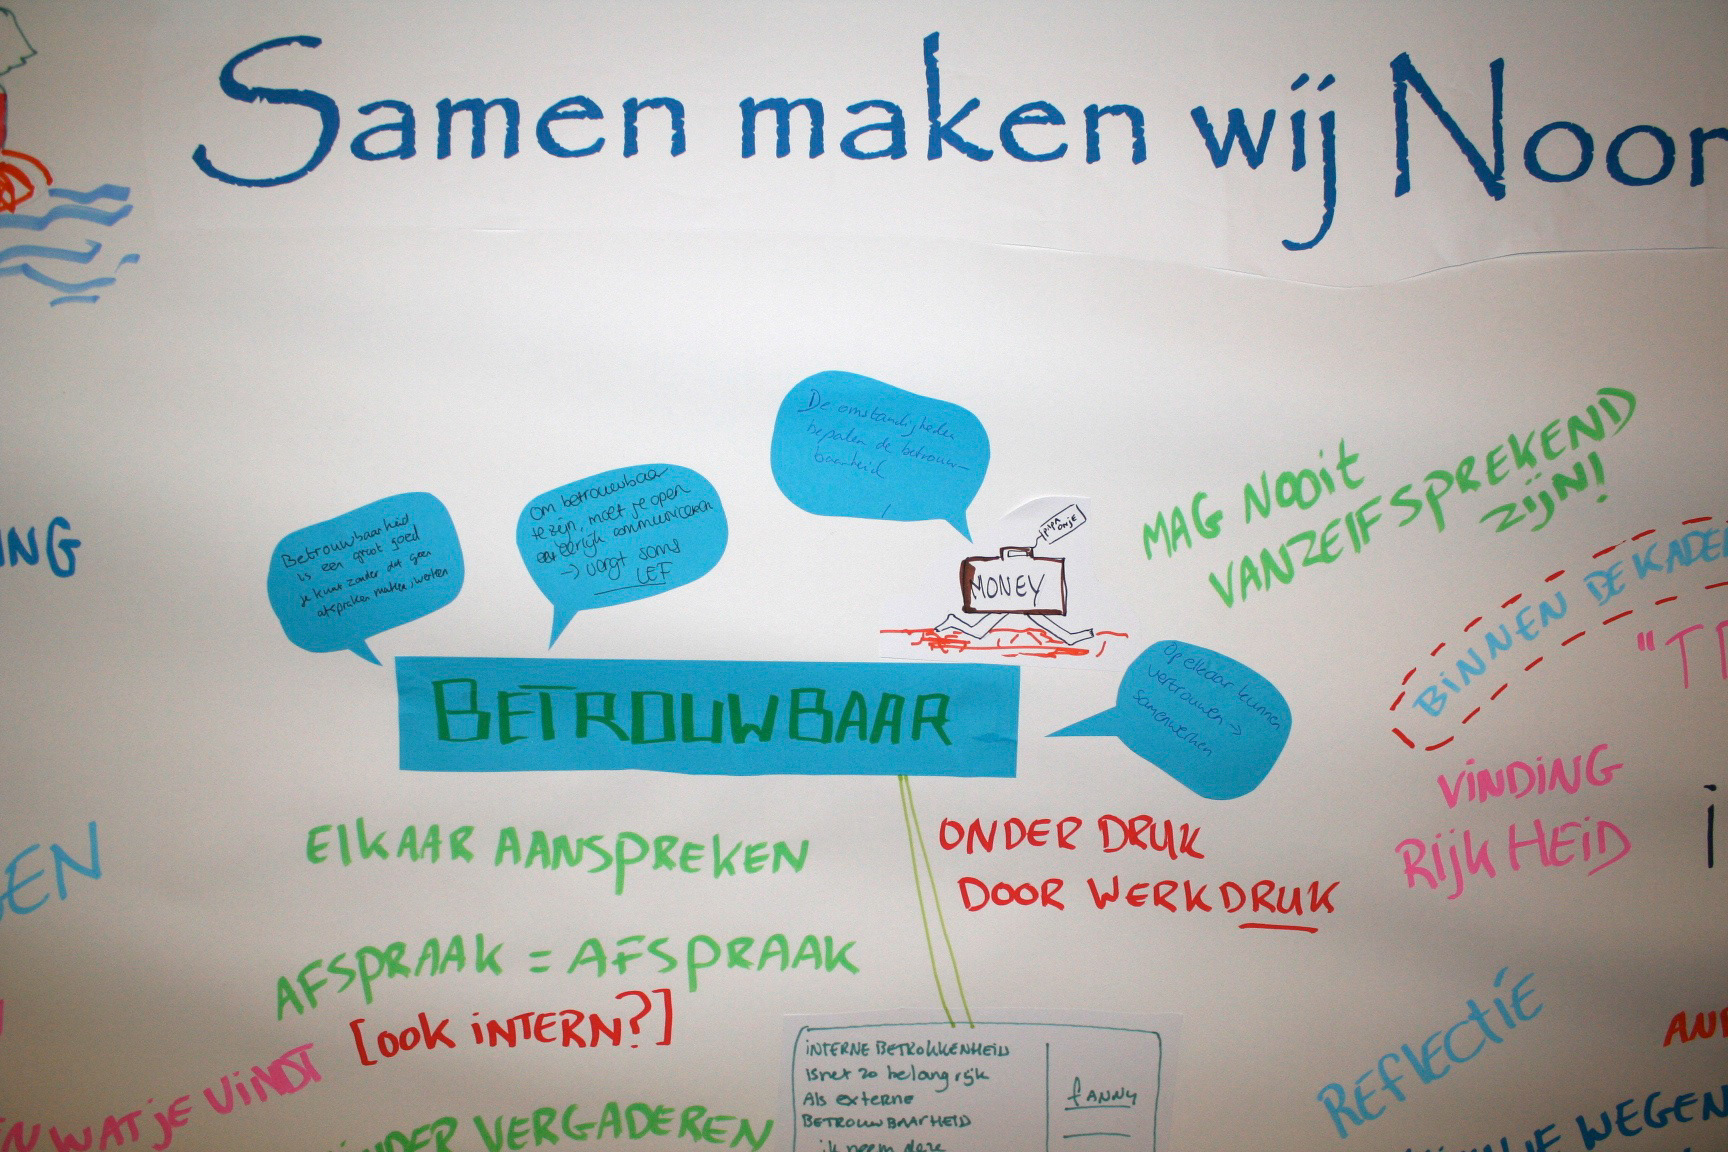 Samen maken wij Noor
De omstandigheden
bepalen de betrouw-
baarheid
Om betrouwbaar
te zijn, moet je open
en eerlijk communiceren
-> vergt soms
LEF
Betrouwbaarheid
is een groot goed
je kunt zonder dat geen
afspraken maken, werken
PIPA
ONJE
MONEY
MAG NOOIT
VANZELFSPREKEND
ZIJN!
BINNEN DE KADER
"T
ING
BETROUWBAAR
Op elkaar kunnen
vertrouwen ->
samenwerken
VINDING
RIJKHEID
ELKAAR AANSPREKEN
ONDER DRUK
DOOR WERKDRUK
GEN
AFSPRAAK = AFSPRAAK
[OOK INTERN?]
EN WAT JE VINDT
INDER VERGADEREN
INTERNE BETROKKENHEID
is net zo belangrijk
Als externe
BETROUWBAARHEID
ik neem deze
fANNY
REFLECTIE
AN
JE WEGEN